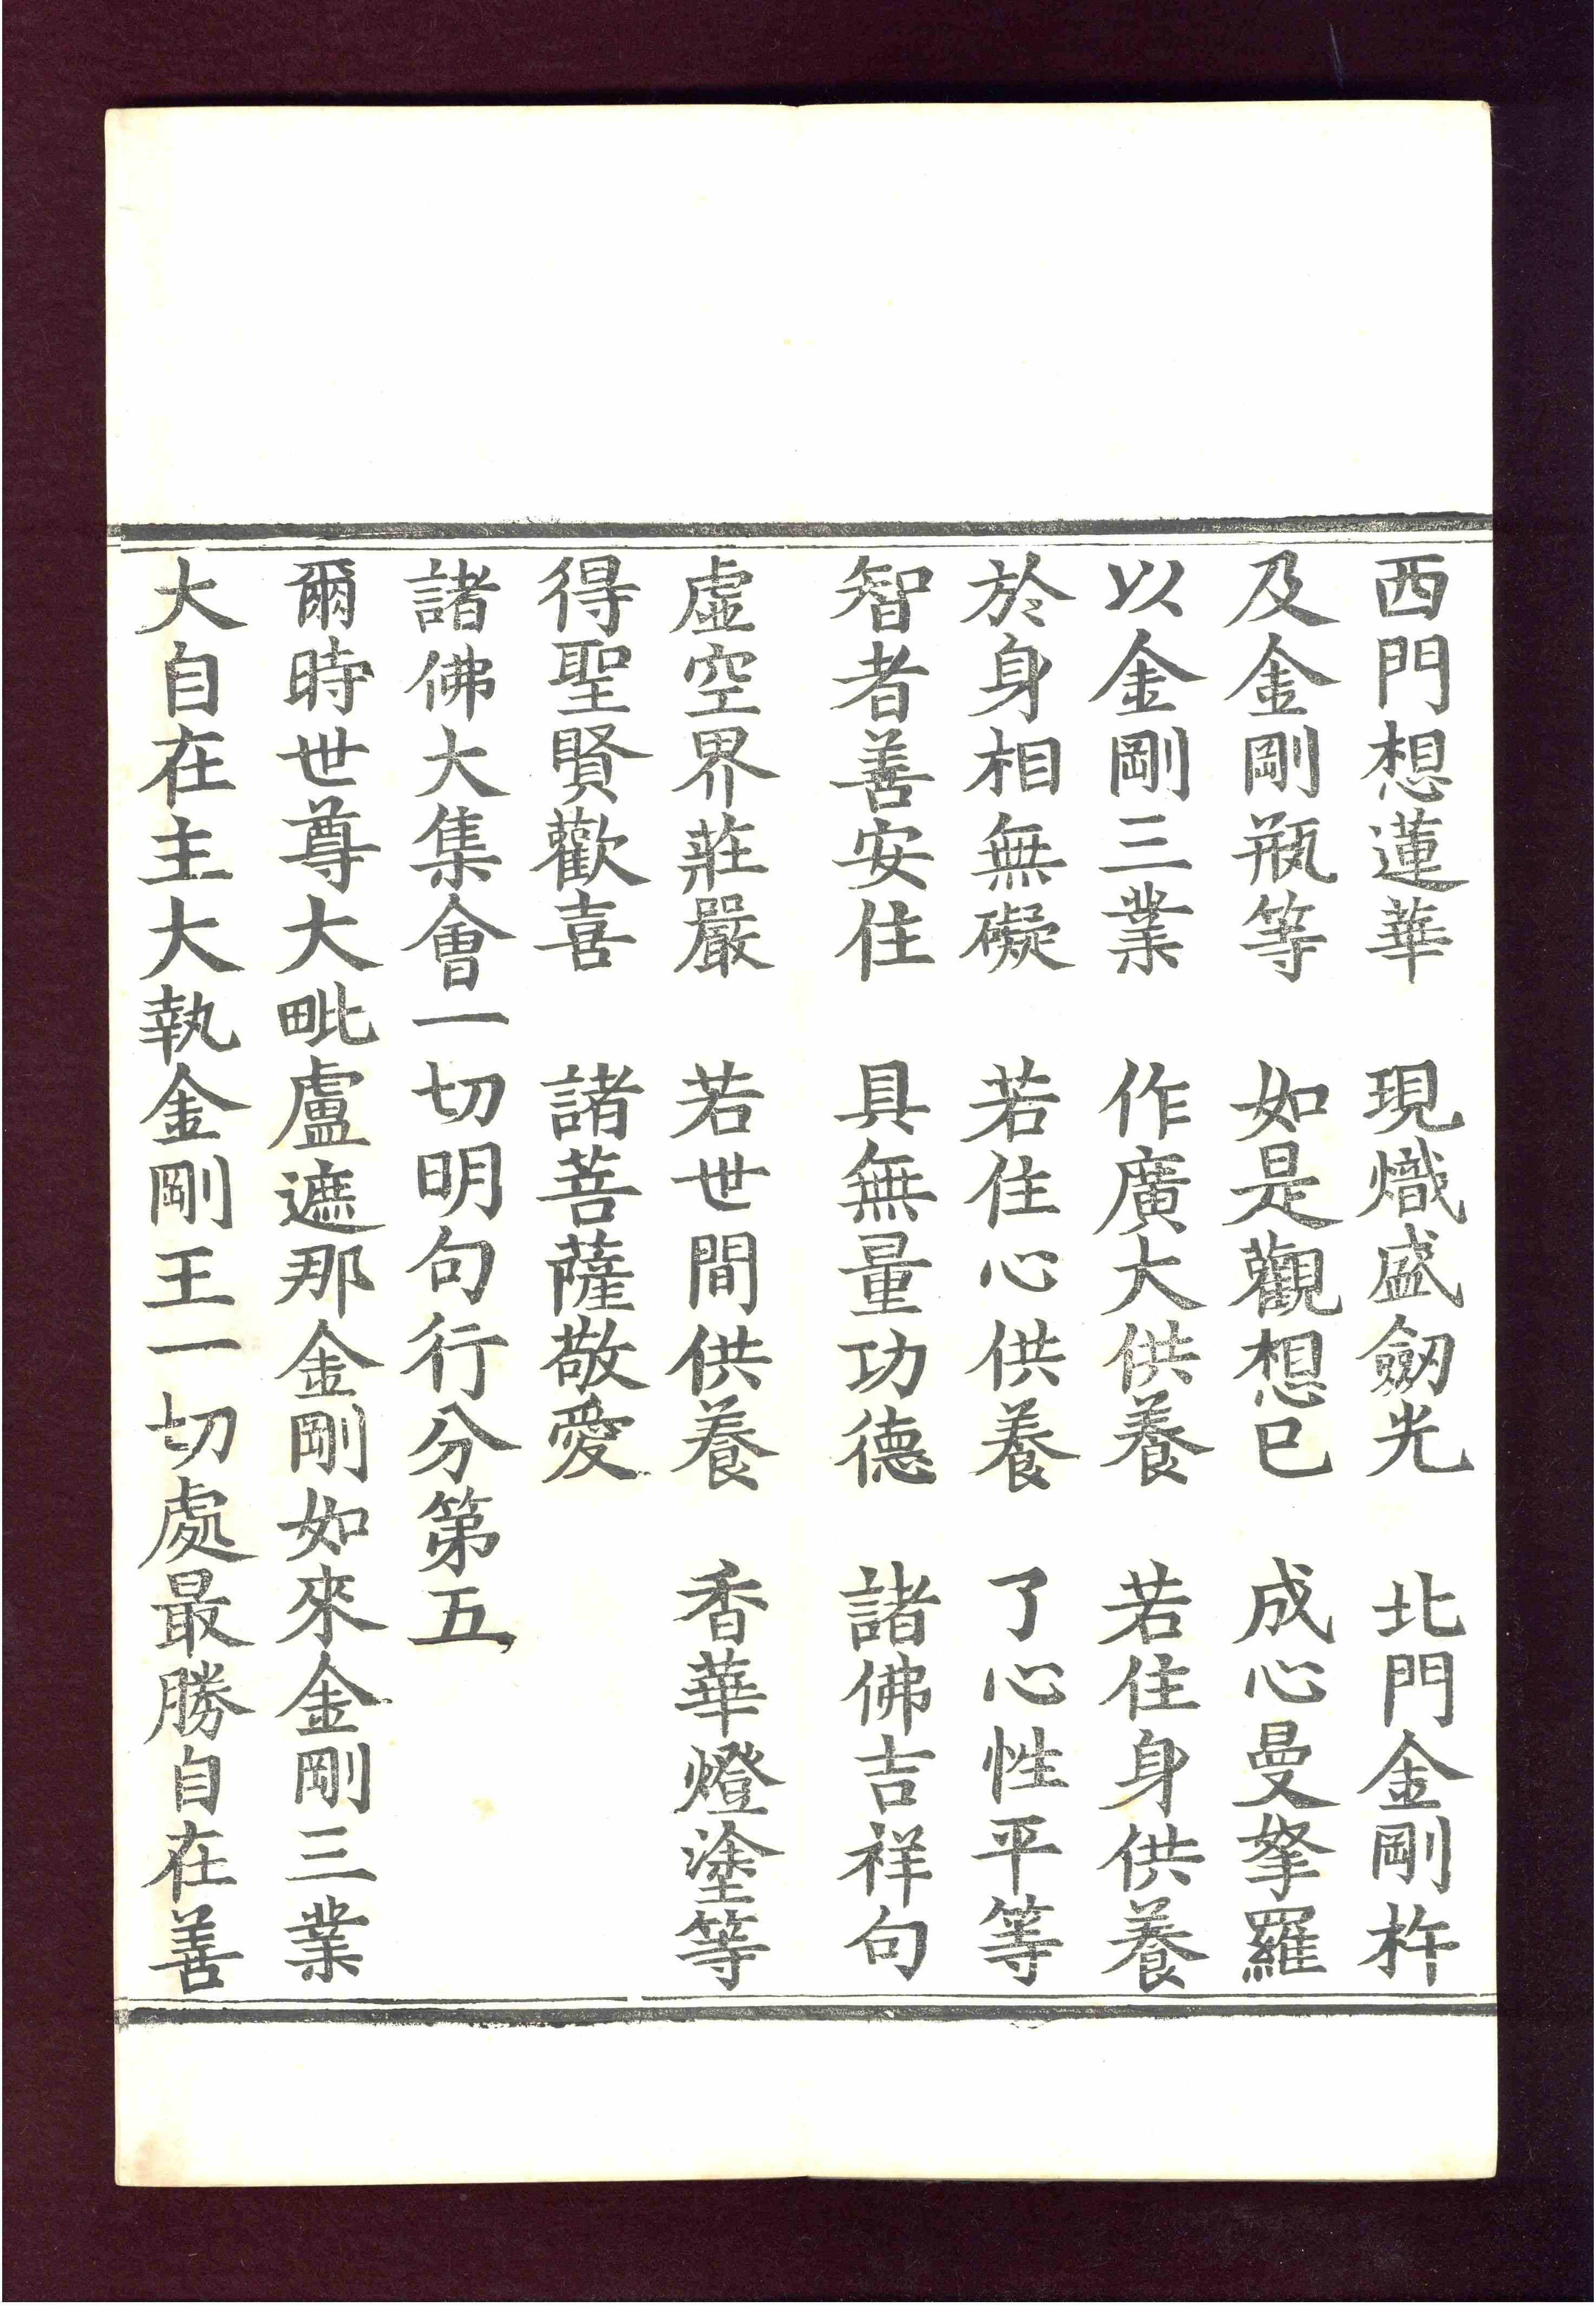 西門想蓮華　現熾盛劒光　北門金剛杵
及金剛瓶等　如是觀想已　成心曼拏羅
以金剛三業　作廣大供養　若住身供養
於身相無礙　若住心供養　了心性平等
智者善安住　具無量功德　諸佛吉祥句
虛空界莊嚴　若世間供養　香華燈塗等
得聖賢歡喜　諸菩薩敬愛
諸佛大集會一切明句行分第五
爾時世尊大毗盧遮那金剛如來金剛三業
大自在主大執金剛王一切處最勝自在善